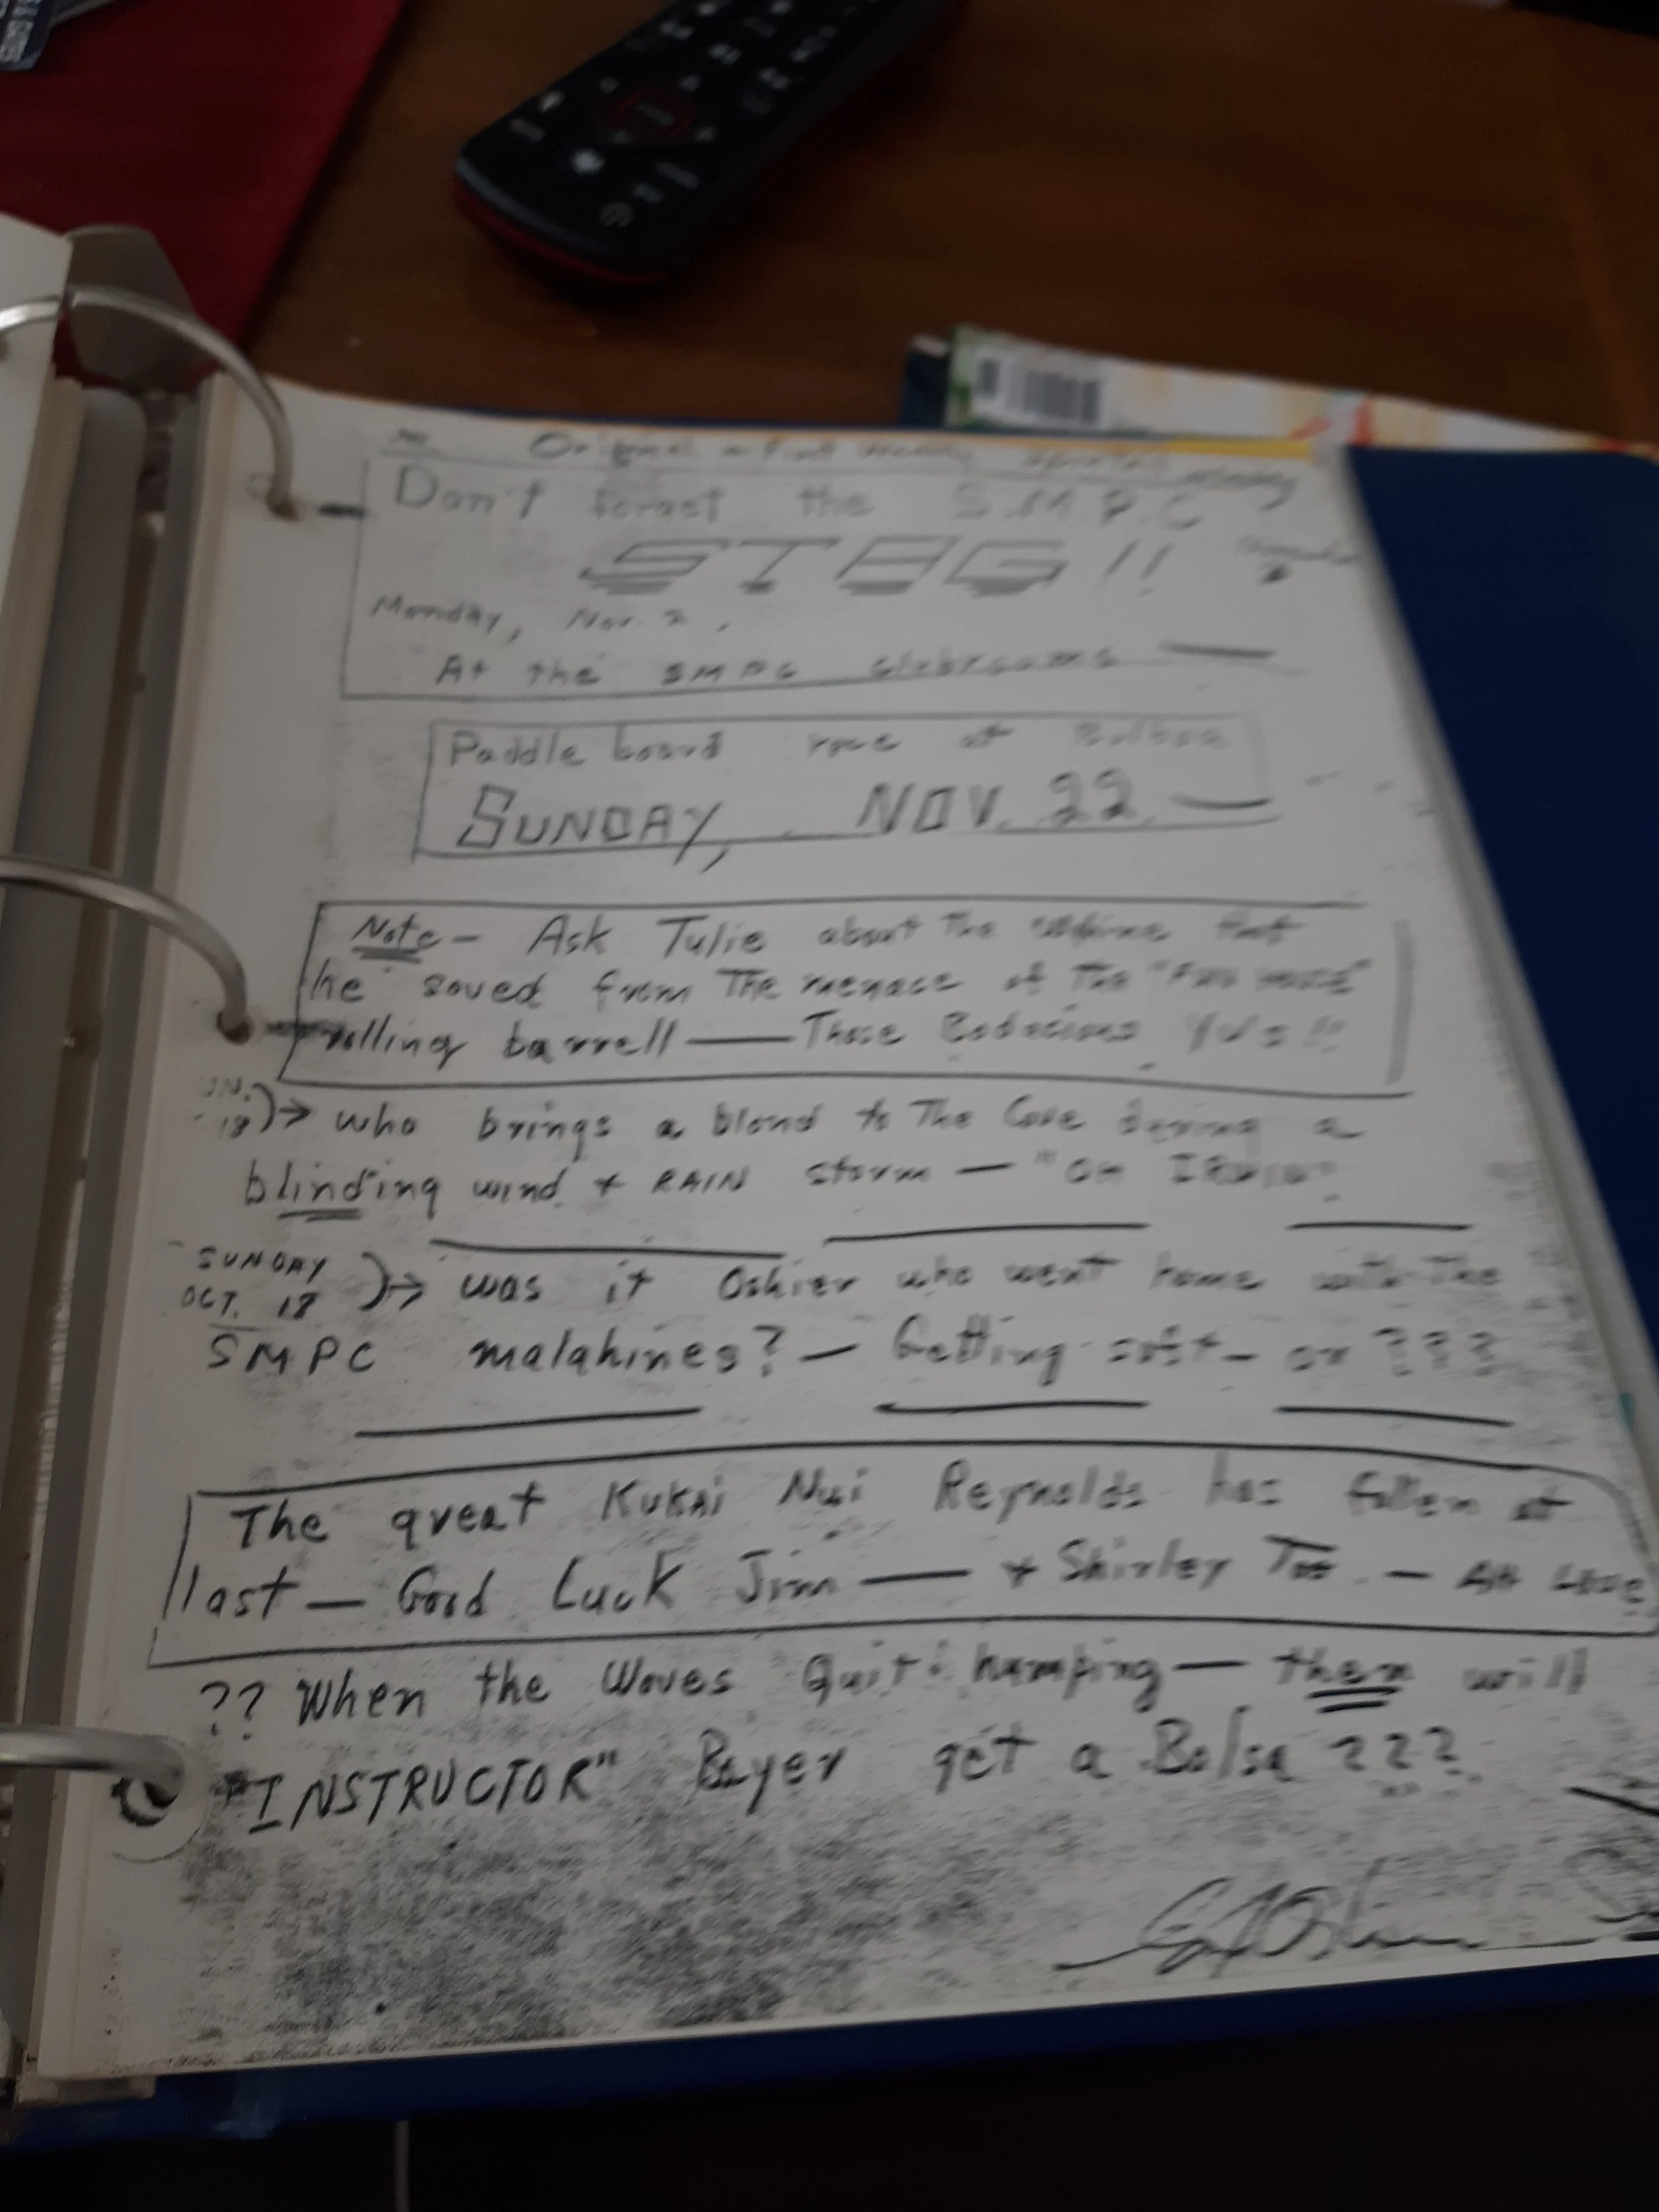 Original
Don't forget the S.M.P.C
STAG!!
Monday, Nov. 2,
At the SMPC clubrooms
Paddle board race at Balboa
SUNDAY, NOV. 22
Note - Ask Tulie about the that
he saved from The menace of The "Fun House"
rolling barrell — Those Bodacious
18 )→ who brings a blond to The Cove during a
blinding wind + RAIN storm — "OH IRWIN"
SUNDAY
OCT. 18 )→ was it Oshier who went home with The
SMPC malahines? — Getting soft — or ???
The great KUKAi Nui Reynolds has fallen at
last — Good Luck Jim — + Shirley Too. — Ah Love
?? When the Waves Quit humping — then will
"INSTRUCTOR" Bayer get a Balsa ???